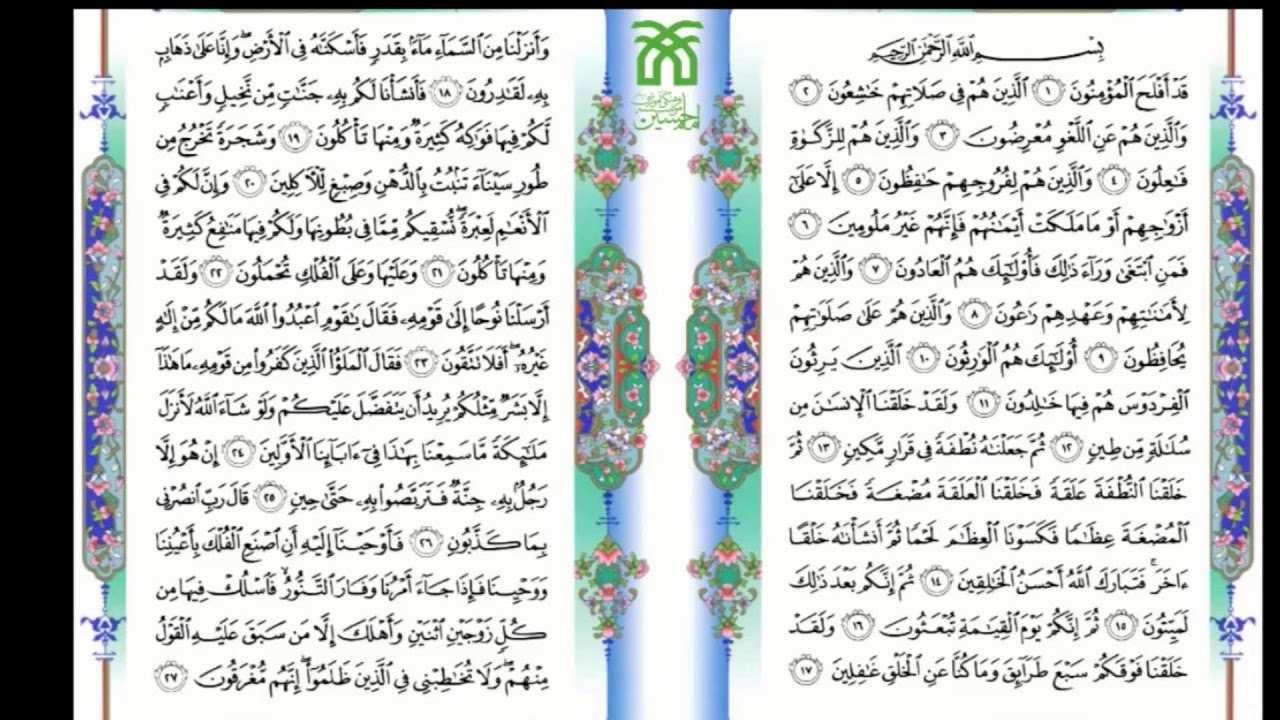 بِسْمِ اللَّهِ الرَّحْمَٰنِ الرَّحِيمِ
قَدْ أَفْلَحَ الْمُؤْمِنُونَ ١ الَّذِينَ هُمْ فِي صَلَاتِهِمْ خَاشِعُونَ ٢
وَالَّذِينَ هُمْ عَنِ اللَّغْوِ مُعْرِضُونَ ٣ وَالَّذِينَ هُمْ لِلزَّكَوٰةِ
فَاعِلُونَ ٤ وَالَّذِينَ هُمْ لِفُرُوجِهِمْ حَافِظُونَ ٥ إِلَّا عَلَىٰ
أَزْوَاجِهِمْ أَوْ مَا مَلَكَتْ أَيْمَانُهُمْ فَإِنَّهُمْ غَيْرُ مَلُومِينَ ٦
فَمَنِ ابْتَغَىٰ وَرَاءَ ذَٰلِكَ فَأُولَٰئِكَ هُمُ الْعَادُونَ ٧ وَالَّذِينَ هُمْ
لِأَمَانَاتِهِمْ وَعَهْدِهِمْ رَاعُونَ ٨ وَالَّذِينَ هُمْ عَلَىٰ صَلَوَاتِهِمْ
يُحَافِظُونَ ٩ أُولَٰئِكَ هُمُ الْوَارِثُونَ ١٠ الَّذِينَ يَرِثُونَ
الْفِرْدَوْسَ هُمْ فِيهَا خَالِدُونَ ١١ وَلَقَدْ خَلَقْنَا الْإِنسَانَ مِن
سُلَالَةٍ مِّن طِينٍ ١٢ ثُمَّ جَعَلْنَاهُ نُطْفَةً فِي قَرَارٍ مَّكِينٍ ١٣ ثُمَّ
خَلَقْنَا النُّطْفَةَ عَلَقَةً فَخَلَقْنَا الْعَلَقَةَ مُضْغَةً فَخَلَقْنَا
الْمُضْغَةَ عِظَامًا فَكَسَوْنَا الْعِظَامَ لَحْمًا ثُمَّ أَنشَأْنَاهُ خَلْقًا
ءَاخَرَ ۚ فَتَبَارَكَ اللَّهُ أَحْسَنُ الْخَالِقِينَ ١٤ ثُمَّ إِنَّكُم بَعْدَ ذَٰلِكَ
لَمَيِّتُونَ ١٥ ثُمَّ إِنَّكُمْ يَوْمَ الْقِيَامَةِ تُبْعَثُونَ ١٦ وَلَقَدْ
خَلَقْنَا فَوْقَكُمْ سَبْعَ طَرَائِقَ وَمَا كُنَّا عَنِ الْخَلْقِ غَافِلِينَ ١٧
وَأَنزَلْنَا مِنَ السَّمَاءِ مَاءً بِقَدَرٍ فَأَسْكَنَّاهُ فِي الْأَرْضِ ۖ وَإِنَّا عَلَىٰ ذَهَابٍ
بِهِ لَقَادِرُونَ ١٨ فَأَنشَأْنَا لَكُم بِهِ جَنَّاتٍ مِّن نَّخِيلٍ وَأَعْنَابٍ
لَّكُمْ فِيهَا فَوَاكِهُ كَثِيرَةٌ وَمِنْهَا تَأْكُلُونَ ١٩ وَشَجَرَةً تَخْرُجُ مِن
طُورِ سَيْنَاءَ تَنبُتُ بِالدُّهْنِ وَصِبْغٍ لِّلْآكِلِينَ ٢٠ وَإِنَّ لَكُمْ فِي
الْأَنْعَامِ لَعِبْرَةً ۖ نُّسْقِيكُم مِّمَّا فِي بُطُونِهَا وَلَكُمْ فِيهَا مَنَافِعُ كَثِيرَةٌ
وَمِنْهَا تَأْكُلُونَ ٢١ وَعَلَيْهَا وَعَلَى الْفُلْكِ تُحْمَلُونَ ٢٢ وَلَقَدْ
أَرْسَلْنَا نُوحًا إِلَىٰ قَوْمِهِ فَقَالَ يَاقَوْمِ اعْبُدُوا اللَّهَ مَا لَكُم مِّنْ إِلَٰهٍ
غَيْرُهُ ۖ أَفَلَا تَتَّقُونَ ٢٣ فَقَالَ الْمَلَؤُا الَّذِينَ كَفَرُوا مِن قَوْمِهِ مَا هَٰذَا
إِلَّا بَشَرٌ مِّثْلُكُمْ يُرِيدُ أَن يَتَفَضَّلَ عَلَيْكُمْ وَلَوْ شَاءَ اللَّهُ لَأَنزَلَ
مَلَائِكَةً مَّا سَمِعْنَا بِهَٰذَا فِي ءَابَائِنَا الْأَوَّلِينَ ٢٤ إِنْ هُوَ إِلَّا
رَجُلٌ بِهِ جِنَّةٌ فَتَرَبَّصُوا بِهِ حَتَّىٰ حِينٍ ٢٥ قَالَ رَبِّ انصُرْنِي
بِمَا كَذَّبُونِ ٢٦ فَأَوْحَيْنَا إِلَيْهِ أَنِ اصْنَعِ الْفُلْكَ بِأَعْيُنِنَا
وَوَحْيِنَا فَإِذَا جَاءَ أَمْرُنَا وَفَارَ التَّنُّورُ ۙ فَاسْلُكْ فِيهَا مِن
كُلٍّ زَوْجَيْنِ اثْنَيْنِ وَأَهْلَكَ إِلَّا مَن سَبَقَ عَلَيْهِ الْقَوْلُ
مِنْهُمْ ۖ وَلَا تُخَاطِبْنِي فِي الَّذِينَ ظَلَمُوا ۖ إِنَّهُم مُّغْرَقُونَ ٢٧